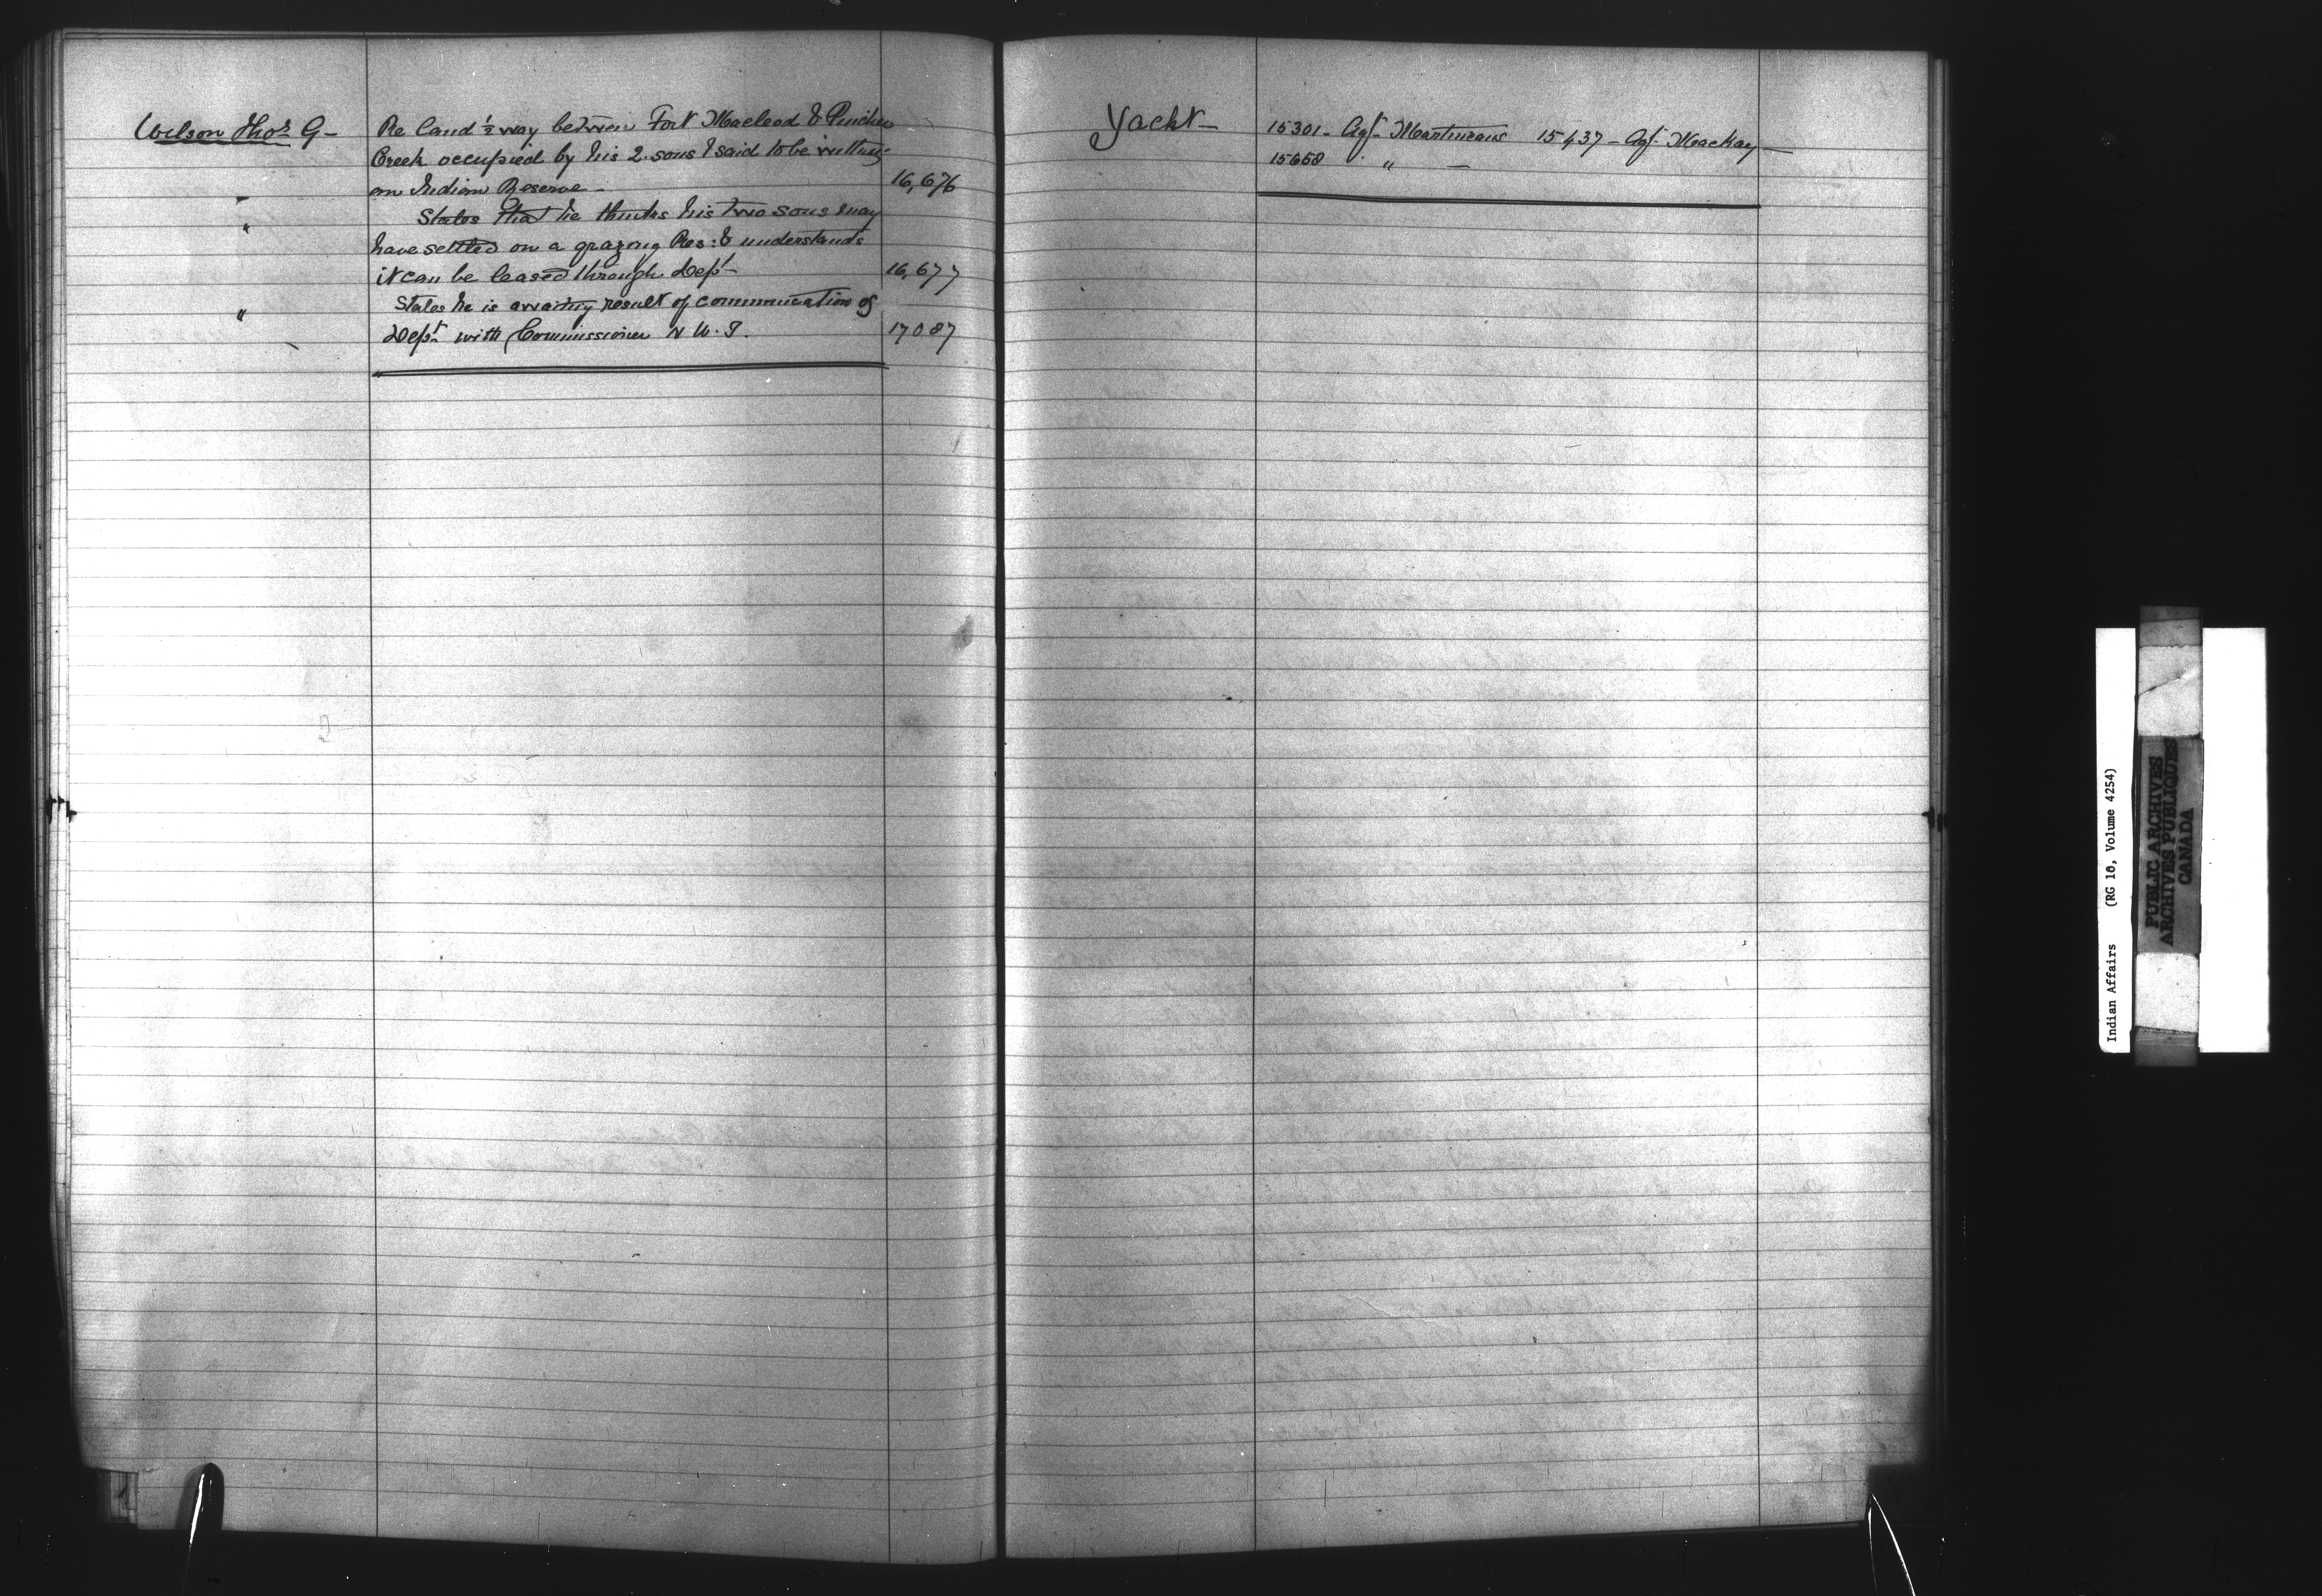 Wilson Thos G-
Re land ½ way between Fort Macleod & Pincher
Creek occupied by his 2 sons & said to be
on Indian Reserve - 16,676
" States that he thinks his two sons may
have settled on a grazing Res: & understands
it can be leased through Dept- 16,677
" States he is awaiting result of communication of
Dept with Commissioner N W. T. 17087
Yacht-
15301- Agt. 15437- Agt. MacKay-
15658 " -
Indian Affairs (RG 10, Volume 4254)
PUBLIC ARCHIVES
ARCHIVES PUBLIQUES
CANADA